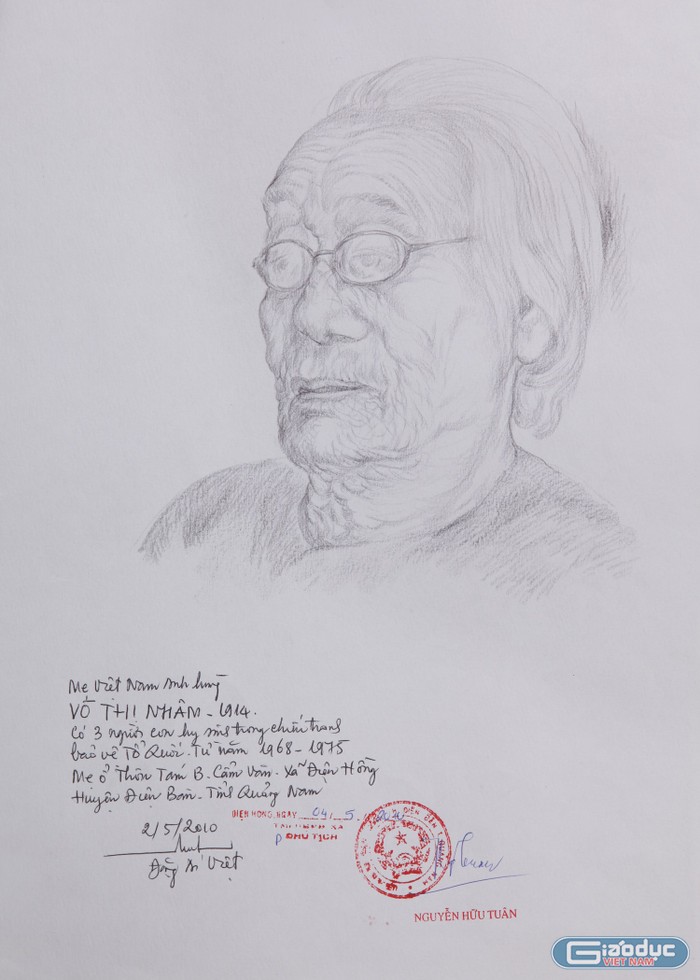 Mẹ Việt Nam Anh hùng
VÕ THỊ NHÂM - 1914.
Có 3 người con hy sinh trong chiến tranh
bảo vệ Tổ Quốc. Từ năm 1968 - 1975
Mẹ ở Thôn Tám B. Cẩm Văn. Xã Điện Hồng
Huyện Điện Bàn. Tỉnh Quảng Nam
ĐIỆN HỒNG, NGÀY 04/5/2010
P CHỦ TỊCH
2/5/2010
Đặng Ái Việt
NGUYỄN HỮU TUÂN
Giáo dục
VIỆT NAM